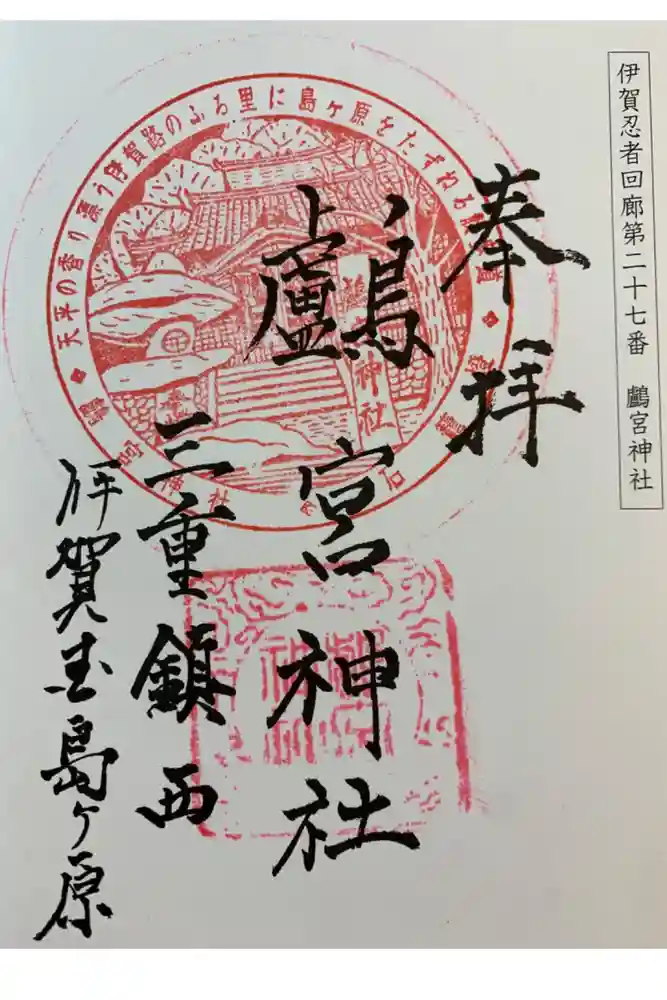 伊賀忍者回廊第二十七番　鸕宮神社
奉拝
鸕宮神社
三重鎮西
伊賀 島ヶ原
天平の香り漂う伊賀路のふる里に島ヶ原をたずねる
宮神社
神社